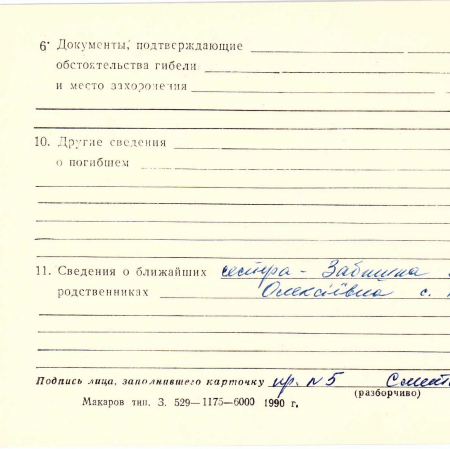 6. Документы, подтверждающие
обстоятельства гибели
и место захоронения
10. Другие сведения
о погибшем
11. Сведения о ближайших сестра -
родственниках Олексіївна с.
Подпись лица, заполнившего карточку пр. N 5
(разборчиво)
Макаров тип. З. 529—1175—6000 1990 г.